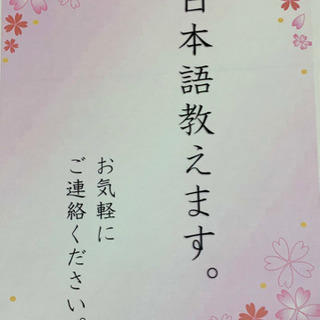 日本語教えます。
お気軽に
ご連絡ください。